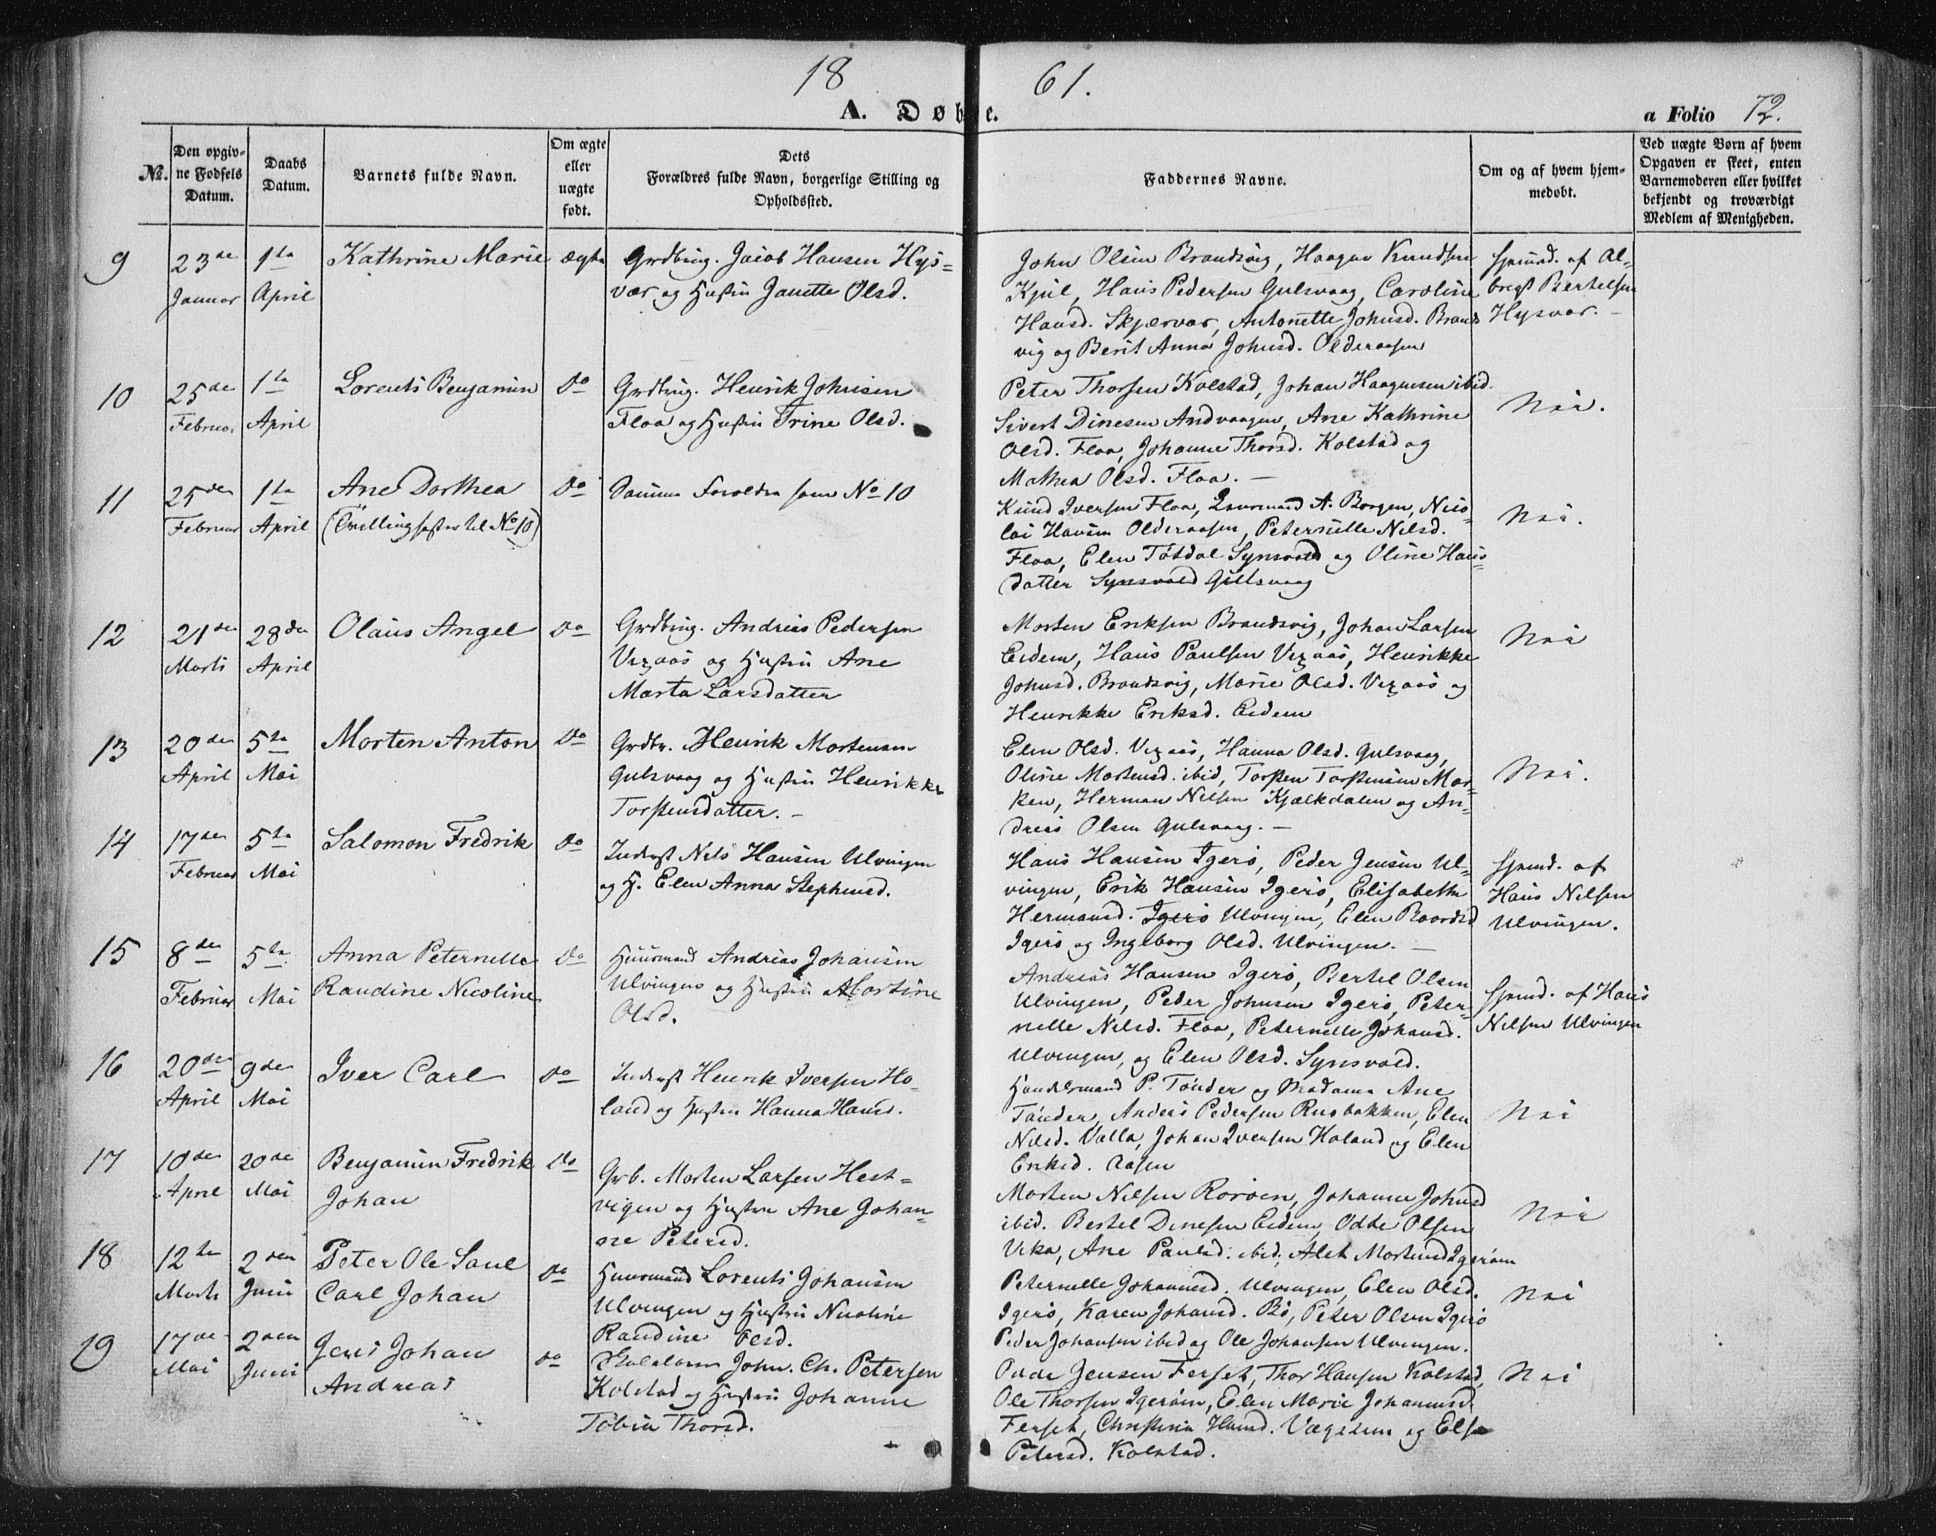 18 61.
A. Døbte. a Folio 72.
№.
Den opgiv-
ne Fødsels
Datum.
Daabs
Datum.
Barnets fulde Navn.
Om ægte
eller
uægte
født.
Dets
Forældres fulde Navn, borgerlige Stilling og
Opholdssted.
Faddernes Navne.
Om og af hvem hjem-
medøbt.
Ved uægte Børn af hvem
Opgaven er skeet, enten
Barnemoderen eller hvilket
bekjendt og troværdigt
Medlem af Menigheden.
9
23de
Januar
1ste
April
Kathrine Marie
ægte
Grdbrug. Jacob Hansen Hys-
vær og Hustru Janette Olsd.
John Olsen Brandsvig, Haagen Knudsen
Kjul, Hans Pedersen Gulsvaag, Caroline
Hansd. Skjærvær, Antonette Johnsd. Brands
vig og Berit Anna Johnsd. Olderaasen
hjemd. af Al-
bregt Bertelsen
Hysvær.
10
25de
Februar
1ste
April
Lorents Benjamin
Do
Grdbrug. Henrik Johnsen
Floa og Hustru Trine Olsd.
Peter Thorsen Kolstad, Johan Haagensen ibid.
Sivert Dinesen Andvaagen, Ane Kathrine
Olsd. Floa, Johanne Thorsd. Kolstad og
Mathea Olsd. Floa. —
Nei.
11
25de
Februar
1ste
April
Ane Dorthea
(Tvillingsøster til No 10)
Do
Samme Forældre som No 10
Knud Iversen Floa, A. Borgen, Nico-
lai Hansen Olderaasen, Peternille Nilsd.
Floa, Elen Tøtdal Synsvold og Oline Hans
datter Synsvold Gulsvaag
Nei.
12
21de
Marts
28de
April
Olaus Angel
Do
Grdbrug. Andreas Pedersen
Vegaas og Hustru Ane
Marta Larsdatter
Morten Eriksen Brandsvig, Johan Larsen
Eidem, Hans Paulsen Vegaas, Henrikke
Johnsd. Brandsvig, Marie Olsd. Vegaas og
Henrikke Eriksd. Eidem
Nei
13
20de
April
5te
Mai
Morten Anton
Do
Grdbr. Henrik Mortensen
Gulsvaag og Hustru Henrikke
Torstensdatter. —
Elen Olsd. Vegaas, Hanna Olsd. Gulsvaag,
Oline Mortensd. ibid, Torsten Torstensen Mar-
ken, Herman Nilsen Kjælkdalen og An-
dreas Olsen Gulsvaag. —
Nei.
14
17de
Februar
5te
Mai
Salomon Fredrik
Do
Inderst Nils Hansen Ulvingen
og H. Elen Anna Stephensd.
Hans Hansen Igerø, Peder Jensen Ul-
vingen, Erik Hansen Igerø, Elisabeth
Hermansd. Igerø Ulvingen, Elen Baardsd
Igerø og Ingeborg Olsd. Ulvingen. —
hjemd. af
Hans Nilsen
Ulvingen.
15
8de
Februar
5te
Mai
Anna Peternelle
Raudine Nicoline
Do
Huusmand Andreas Johansen
Ulvingen og Hustru Martine
Olsd.
Andreas Hansen Igerø, Bertel Olsen
Ulvingen, Peder Johnsen Igerø, Peter-
nelle Nilsd. Floa, Peternelle Johansd.
Ulvingen, og Elen Olsd. Synsvold.
hjemd. af Hans
Nilsen Ulvingen
16
20de
April
9de
Mai
Iver Carl
Do
Inderst Henrik Iversen Ho-
land og Hustru Hanna Hansd.
Handelsmand P. Tønder og Madame Ane
Tønder, Anders Pedersen Rusbakken, Elen
Nilsd. Valla, Johan Iversen Holand og Elen
Eriksd. Aasen
Nei
17
10de
April
20de
Mai
Benjamin Fredrik
Johan
Do
Grb. Morten Larsen Hest-
vigen og Hustru Ane Johan-
ne Petersd.
Morten Nilsen Rørøen, Johanne Johnsd
ibid. Bertel Dinesen Eidem, Odde Olsen
Vika, Ane Paulsd. ibid, Alet Mortensd Igerøen
Nei
18
12te
Marts
2den
Juni
Peter Ole Saul
Carl Johan
Do
Huusmand Lorents Johansen
Ulvingen og Hustru Nicoline
Raudine Olsd.
Peternelle Johannesd. Ulvingen, Elen Olsd.
Igerø, Karen Johansd. Bø, Peter Olsen Igerø
Peder Johansen ibid og Ole Johansen Ulvingen.
Nei
19
17de
Mai
2den
Juni
Jens Johan
Andreas
Do
John. Ch. Petersen
Kolstad og Hustru Johanne
Tobia Thorsd.
Jensen Ferset, Thor Hansen Kolstad,
Ole Thorsen Igerøen, Elen Marie Johannesd
Ferset, Christine Hansd. Vægstein og Else
Petersd. Kolstad.
Nei